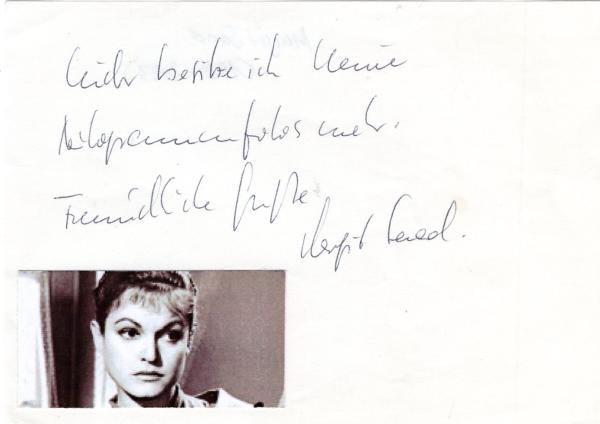 Leider besitze ich keine
Autogrammfotos mehr.
Freundliche Grüße
Margit Saad.